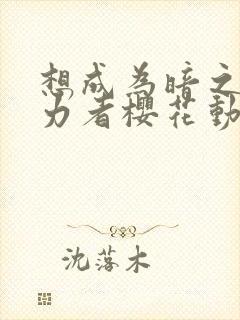 想成为暗之
力者樱花动
沈落木